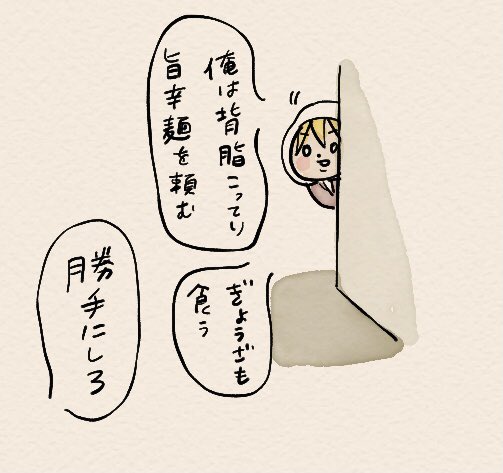 俺は背脂こってり
旨辛麺を頼む
ぎょうざも
食う
勝手にしろ